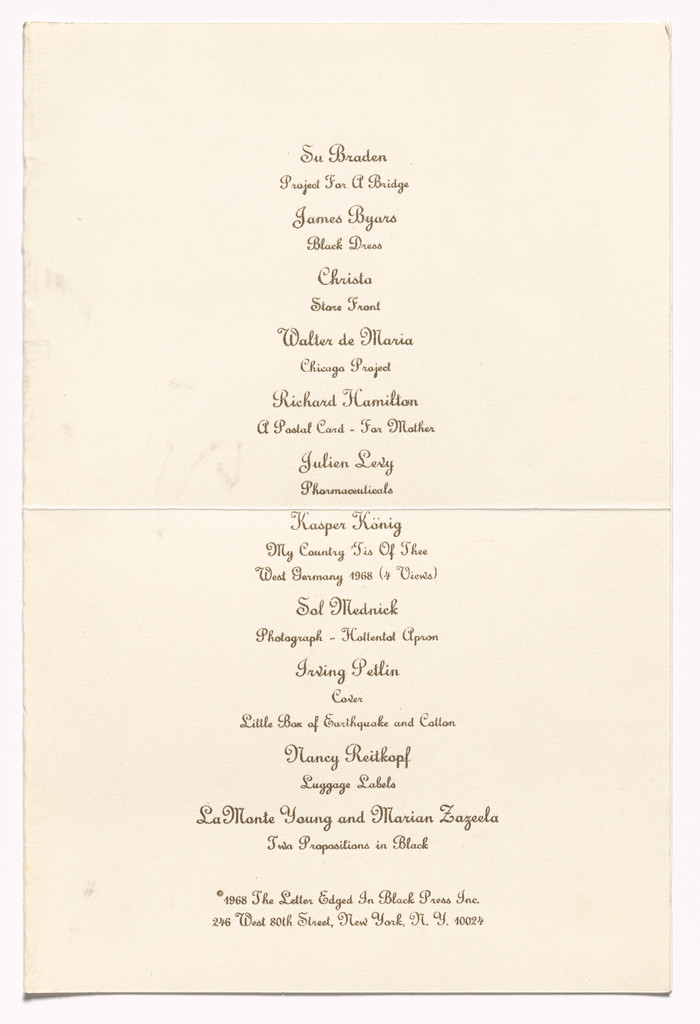 Su Braden
Project For A Bridge
James Byars
Black Dress
Christo
Store Front
Walter de Maria
Chicago Project
Richard Hamilton
A Postal Card - For Mother
Julien Levy
Pharmaceuticals
Kasper König
My Country 'Tis Of Thee
West Germany 1968 (4 Views)
Sol Mednick
Photograph - Hottentot Apron
Irving Petlin
Cover
Little Box of Earthquake and Cotton
Nancy Reitkopf
Luggage Labels
LaMonte Young and Marian Zazeela
Two Propositions in Black
©1968 The Letter Edged In Black Press Inc.
246 West 80th Street, New York, N. Y. 10024